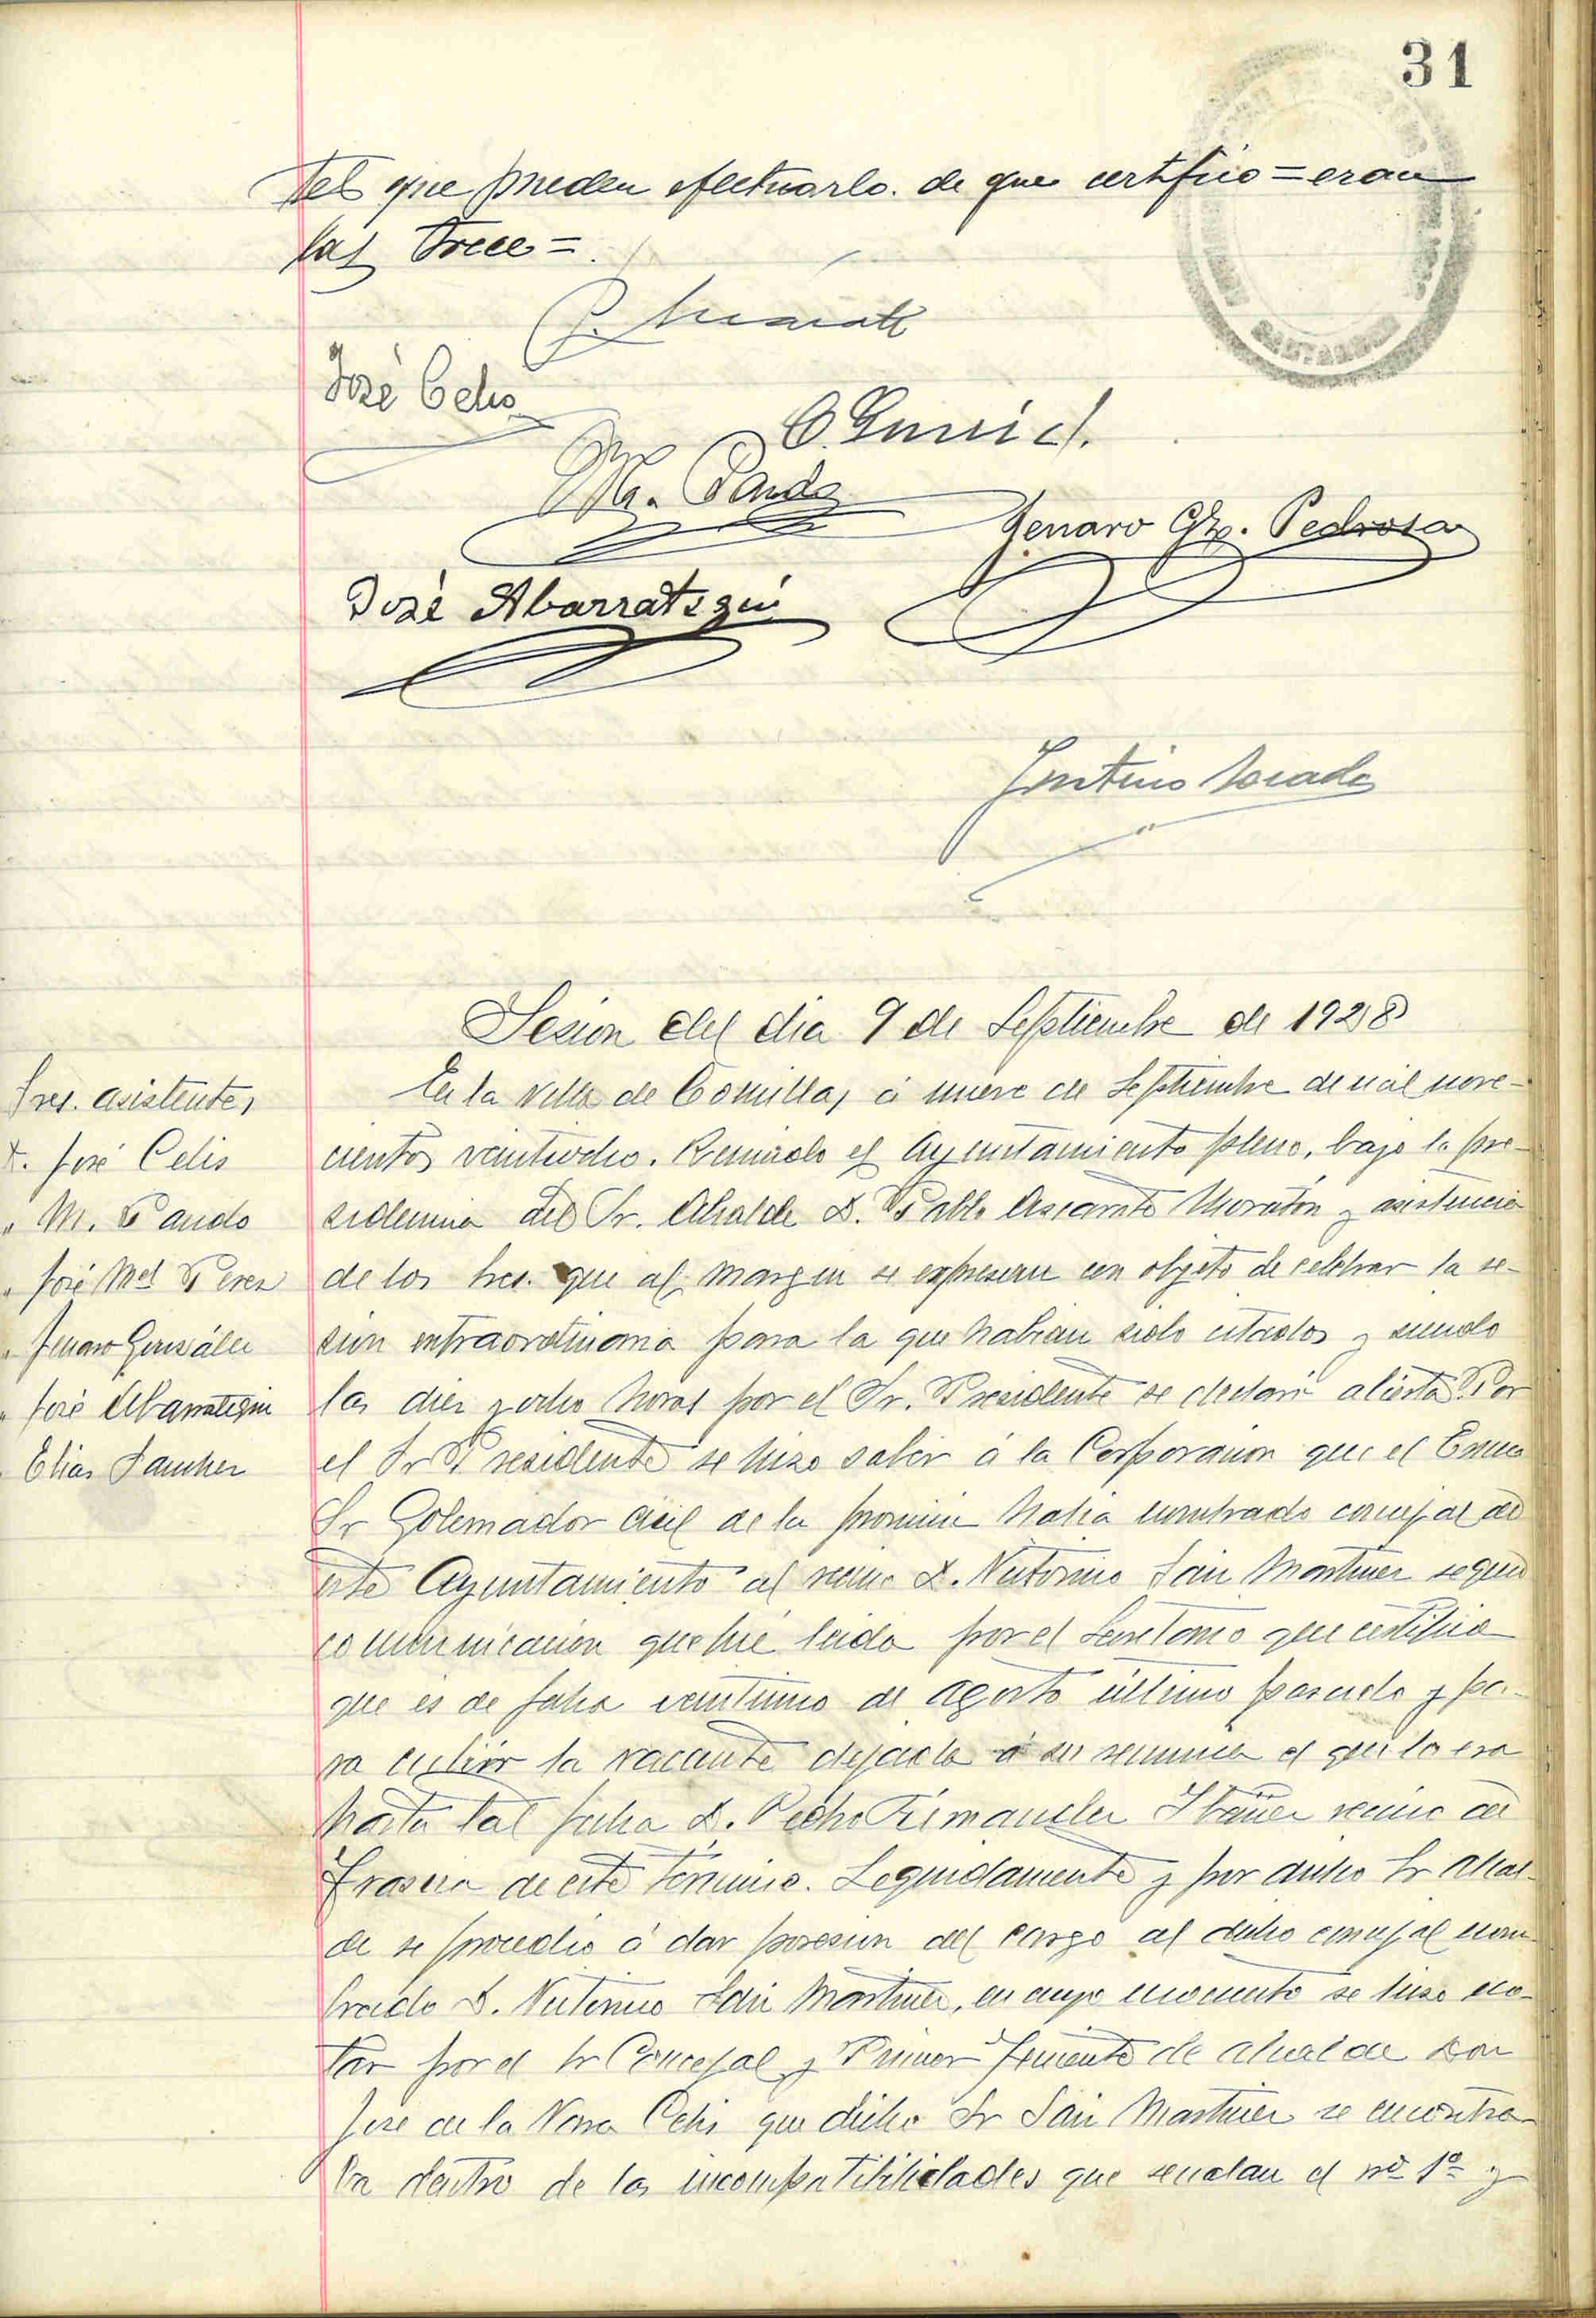 31
tes que pueden efectuarlo. de que certifico = eran
las trece =.
José Celis
M. Pando
Genaro Gz. Pedrosa
José Abarrategui
Sesion del dia 9 de Septiembre de 1928
Sres. asistentes
D. José Celis
" M. Pando
" José Mel Perez
" Jenaro González
" José Abarrategui
Elias Sanchez
En la villa de Comillas, á nueve de Septiembre de mil nove-
cientos veintiocho. Reunido el Ayuntamiento pleno, bajo la pre-
sidencia del Sr. Alcalde D. Pablo Moratón y asistencia
de los Sres. que al margen se expresan con objeto de celebrar la se-
sion extraordinaria para la que habian sido citados y siendo
las diez y ocho horas por el Sr. Presidente se declaró abierta. Por
el Sr Presidente se hizo saber á la Corporacion que el Excmo
Sr Gobernador Civil de la provincia habia nombrado concejal de
este Ayuntamiento al vecino D. Victorino Sain Martinez segun
comunicacion que fué leida por el Secretario que certifica
que es de fecha de agosto último pasado y pa-
ra cubrir la vacante dejada á su renuncia el que lo era
hasta tal fecha D. Pedro Fernandez Ibañez vecino de
de este término. Seguidamente y por dicho Sr Alcal-
de se procedió á dar posesion del cargo al dicho concejal nom-
brado D. Victorino Sain Martinez, en cuyo momento se hizo no-
tar por el Sr Concejal y Primer Teniente de alcalde Don
José de la Vara Celis que dicho Sr Sain Martinez se encontra-
ba dentro de las incompatibilidades que señalan el nº 1º y